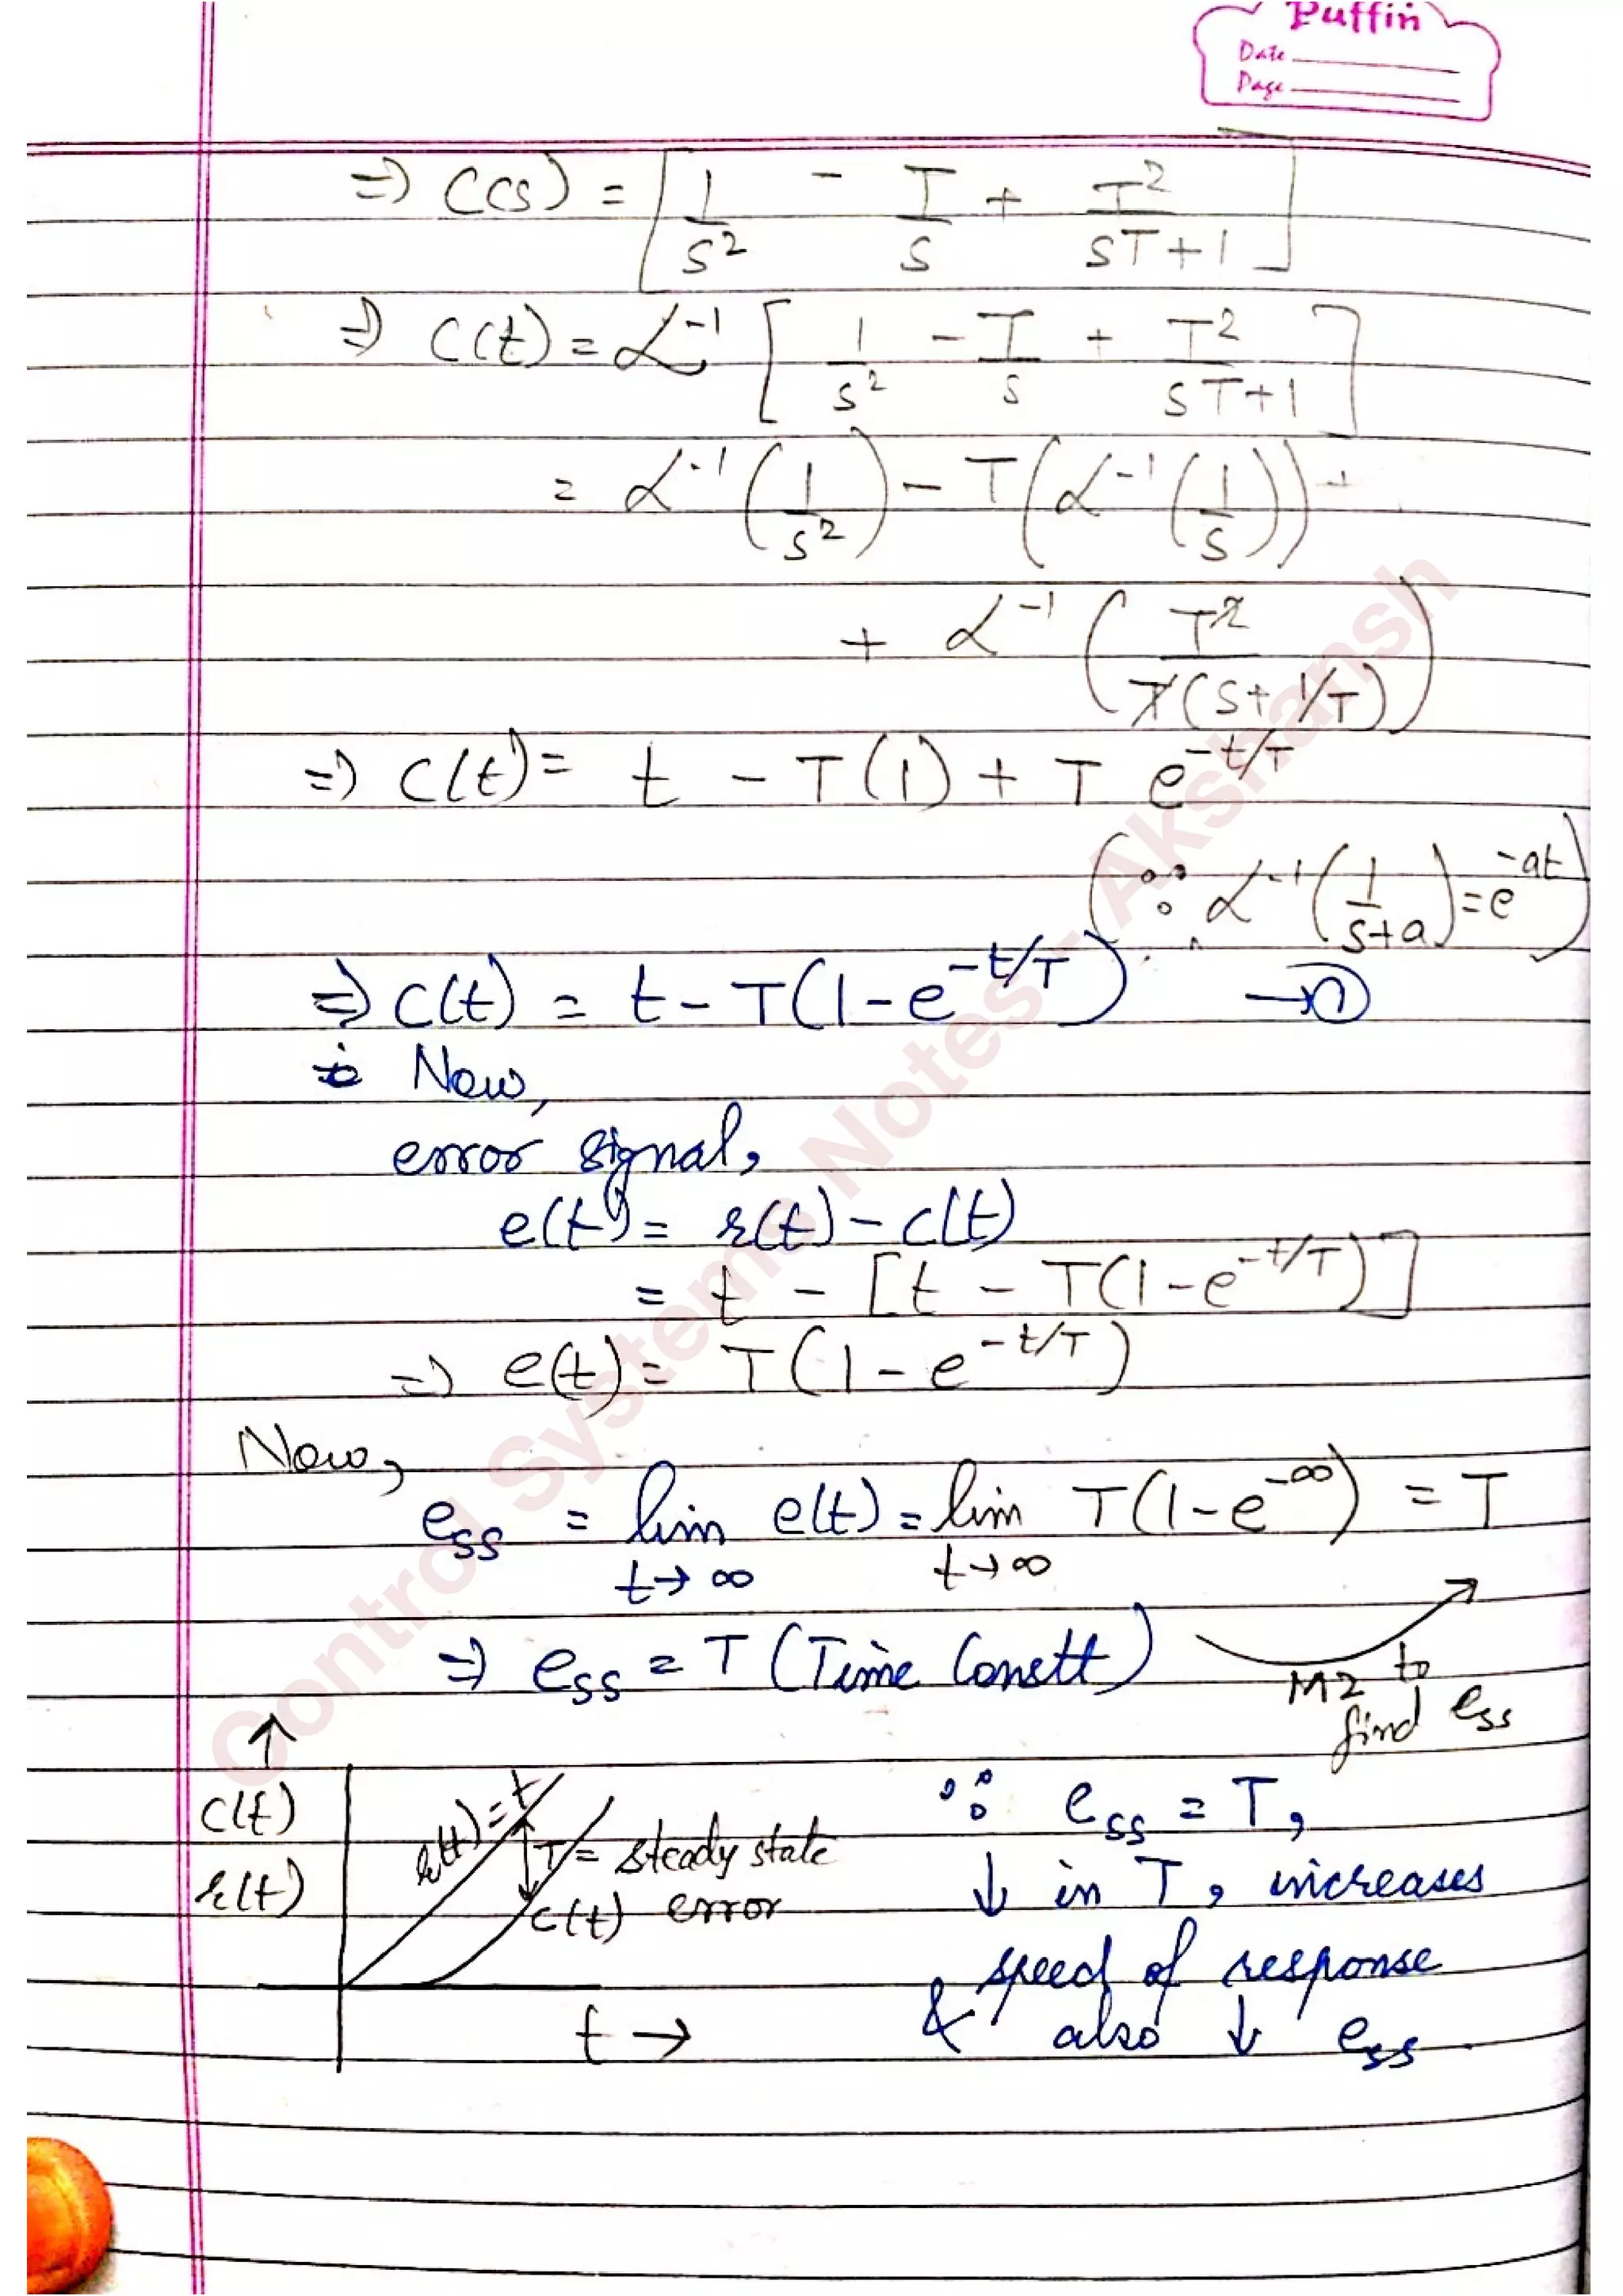 Puffin
Date
Page
=> C(s) = [1/s² - T/s + T²/(sT+1)]
=> C(t) = L⁻¹ [1/s² - T/s + T²/(sT+1)]
= L⁻¹(1/s²) - T(L⁻¹(1/s)) +
+ L⁻¹(T²/(T(s+1/T)))
=> C(t) = t - T(1) + T e^(-t/T)
(∵ L⁻¹(1/(s+a)) = e^(-at))
=> C(t) = t - T(1-e^(-t/T)) → ①
Now,
error signal,
e(t) = r(t) - c(t)
= t - [t - T(1-e^(-t/T))]
=> e(t) = T(1-e^(-t/T))
Now,
e_ss = lim t→∞ e(t) = lim t→∞ T(1-e^(-∞)) = T
=> e_ss = T (Time Constt)
M2 to
find e_ss
↑
c(t)
r(t)
r(t) = t
T = steady state
error
c(t)
t →
∵ e_ss = T,
↓ in T, increases
speed of response
& also ↓ e_ss
Control Systems Notes - Akshansh